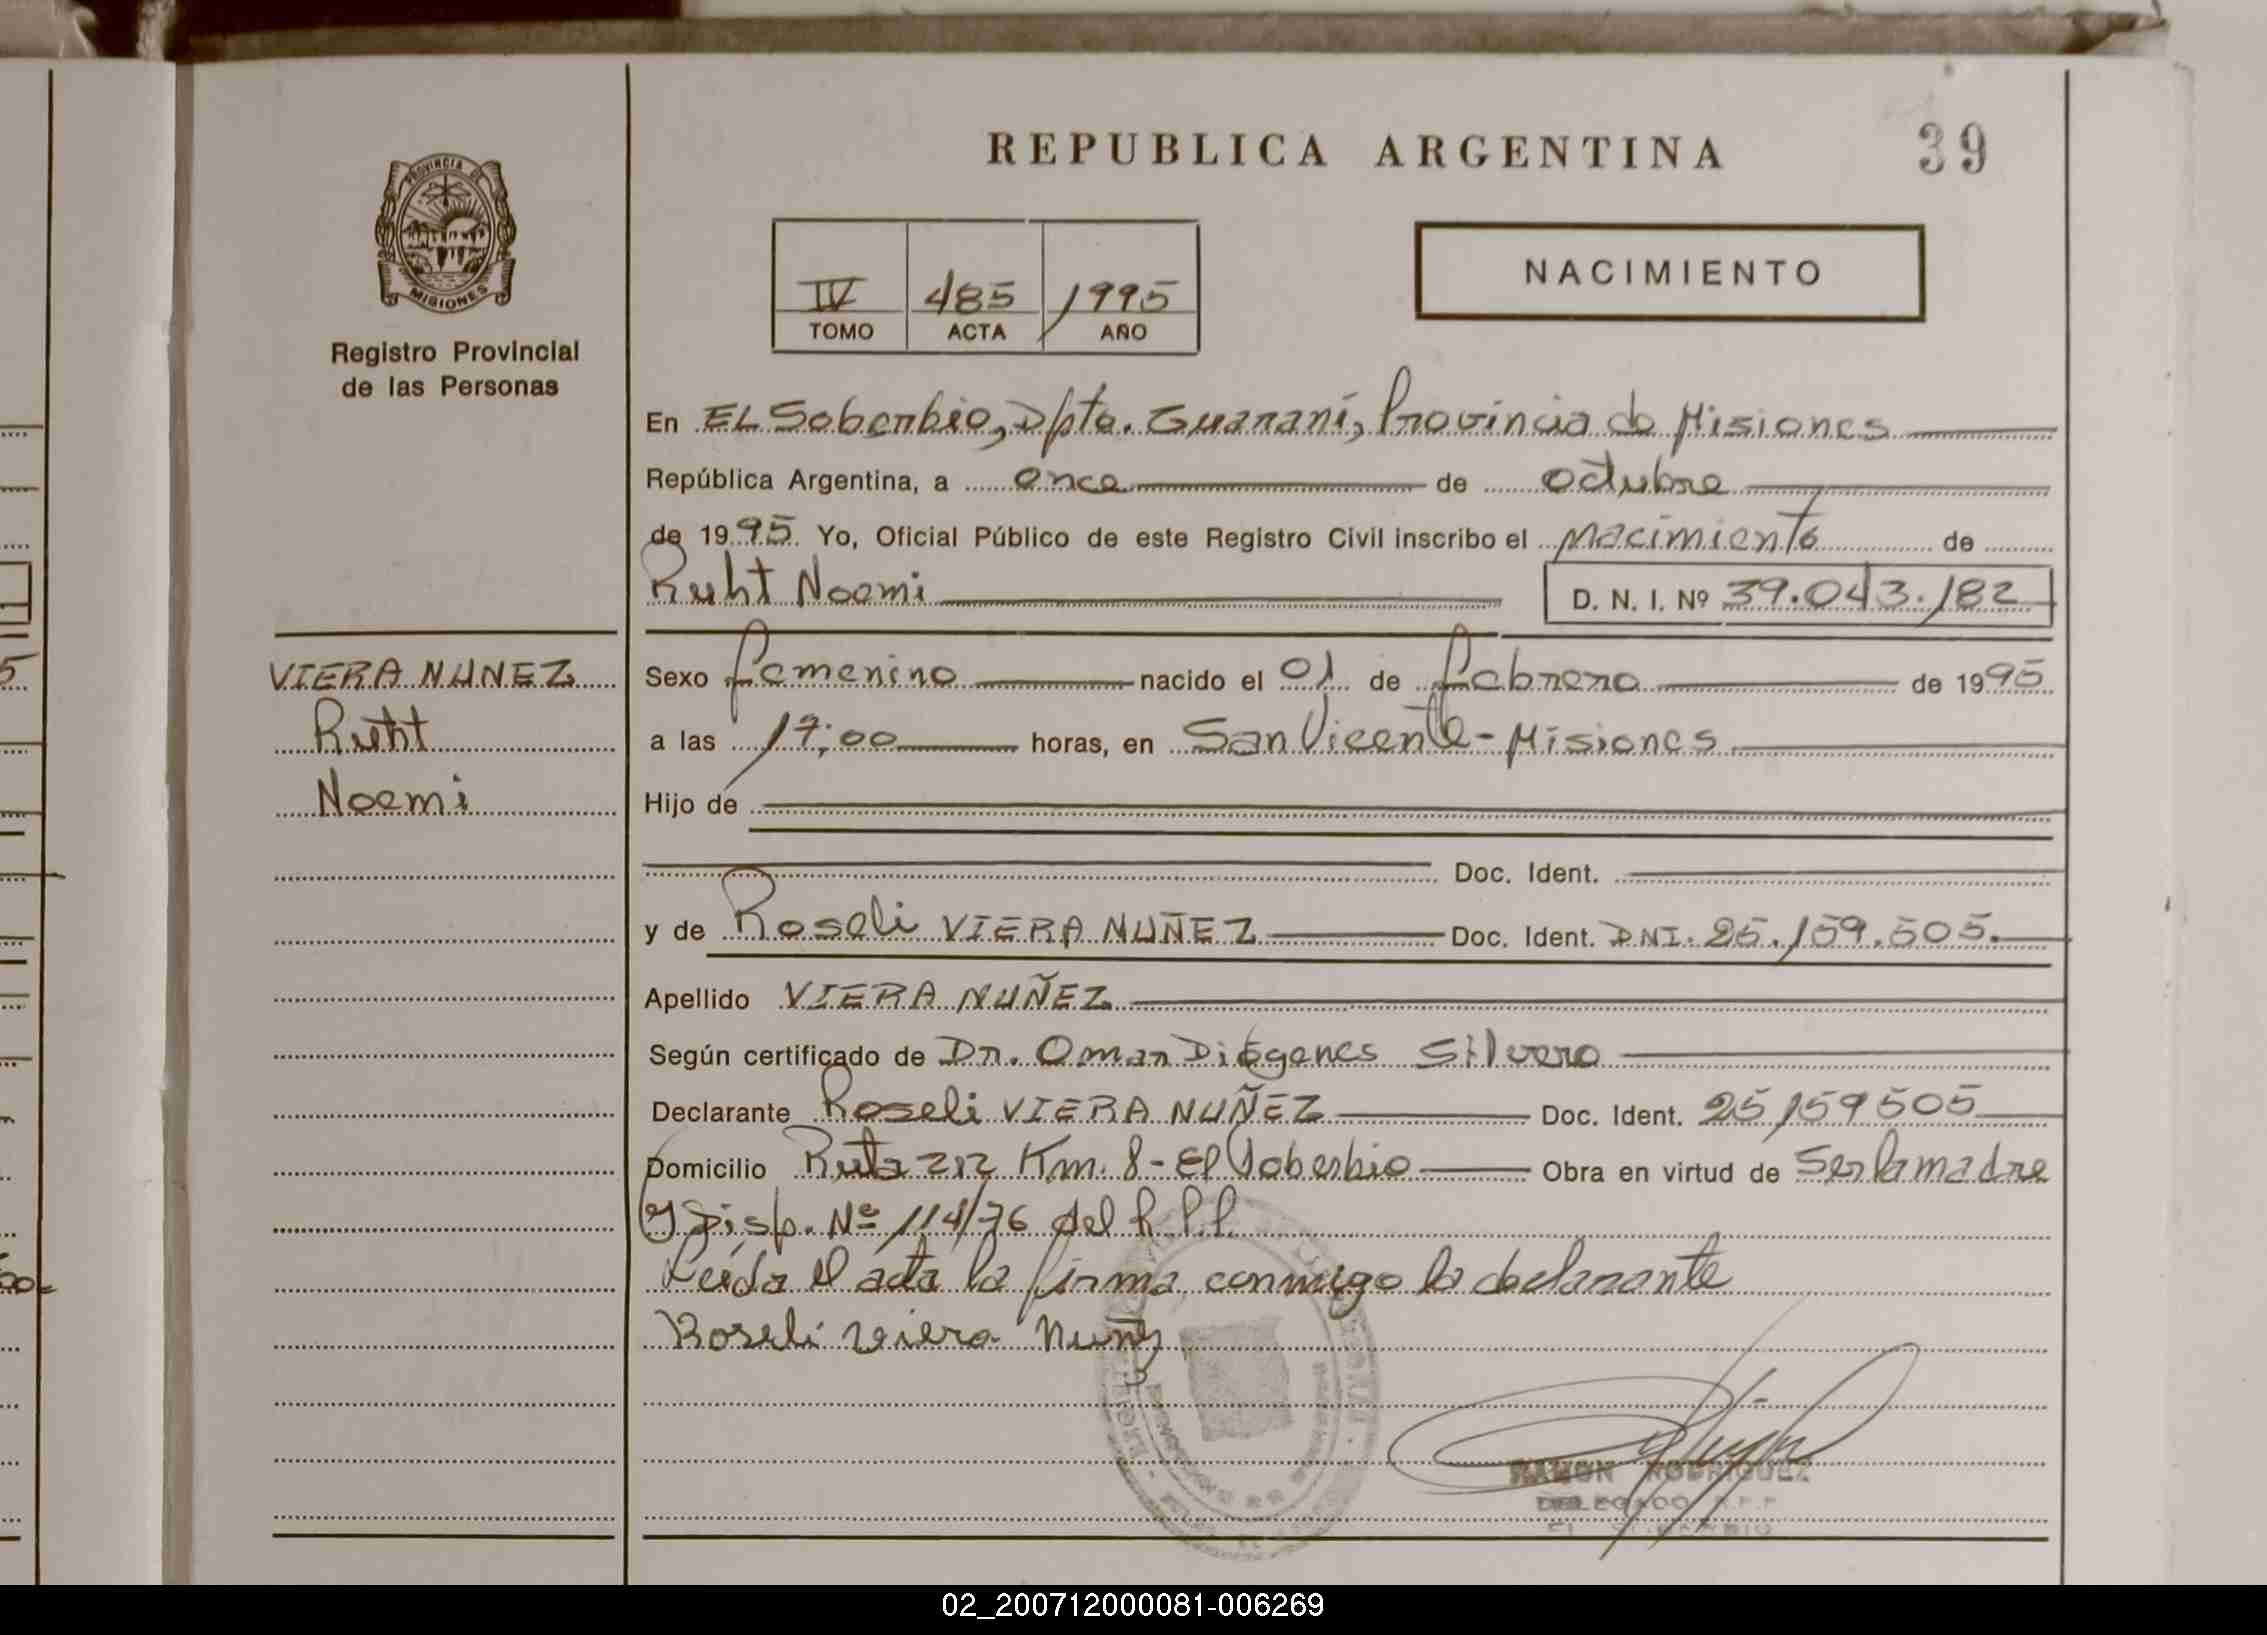 REPUBLICA ARGENTINA
39
PROVINCIA DE
MISIONES
Registro Provincial
de las Personas
IV 485 1995
TOMO ACTA AÑO
NACIMIENTO
En EL Soberbio, Dpto. Guaraní, Provincia de Misiones
República Argentina, a once de octubre
de 1995 Yo, Oficial Público de este Registro Civil inscribo el nacimiento de
Ruht Noemi
D. N. I. Nº 39.043.182
VIERA NUNEZ
Ruht
Noemi
Sexo femenino nacido el 01 de febrero de 1995
a las 17:00 horas, en San Vicente - Misiones
Hijo de
Doc. Ident.
y de Roseli VIERA NUÑEZ Doc. Ident. DNI. 25.159.505.
Apellido VIERA NUÑEZ
Según certificado de Dr. Omar Diógenes Silvero
Declarante Roseli VIERA NUÑEZ Doc. Ident. 25159505
Domicilio Ruta 212 Km. 8 - El Soberbio Obra en virtud de Ser la madre
y Disp. Nº 114/76 del R.P.P.
Leída el acta la firma conmigo la declarante
Roseli Viera Nuñez
RAMON RODRIGUEZ
DELEGADO R.P.P
EL SOBERBIO
02_200712000081-006269